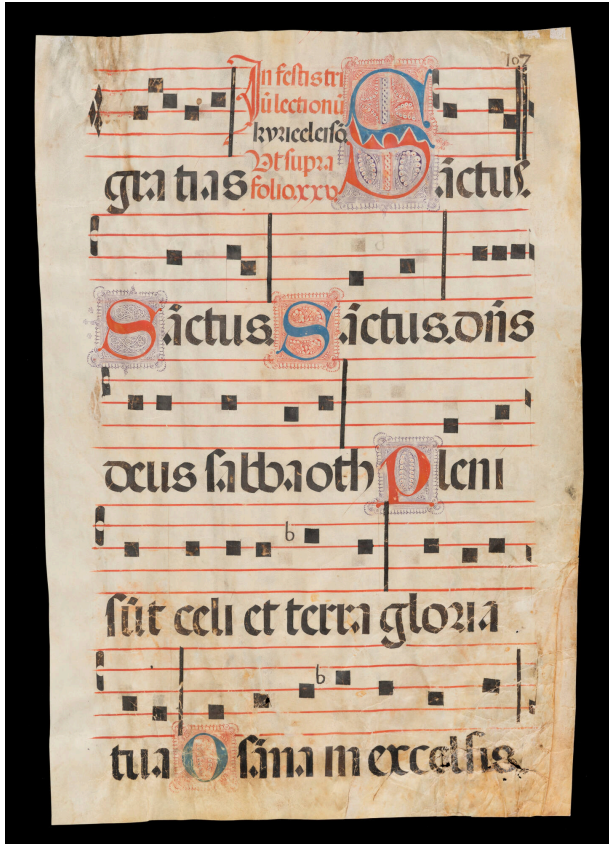 107
In festis tri
ũ lectionũ
kyrieeleisõ
Vt supra
folio.xxv
gratias Sãctus.
Sãctus. Sãctus. dñs
deus sabbaoth Pleni
sũt celi et terra gloria
tua Osãna in excelsis